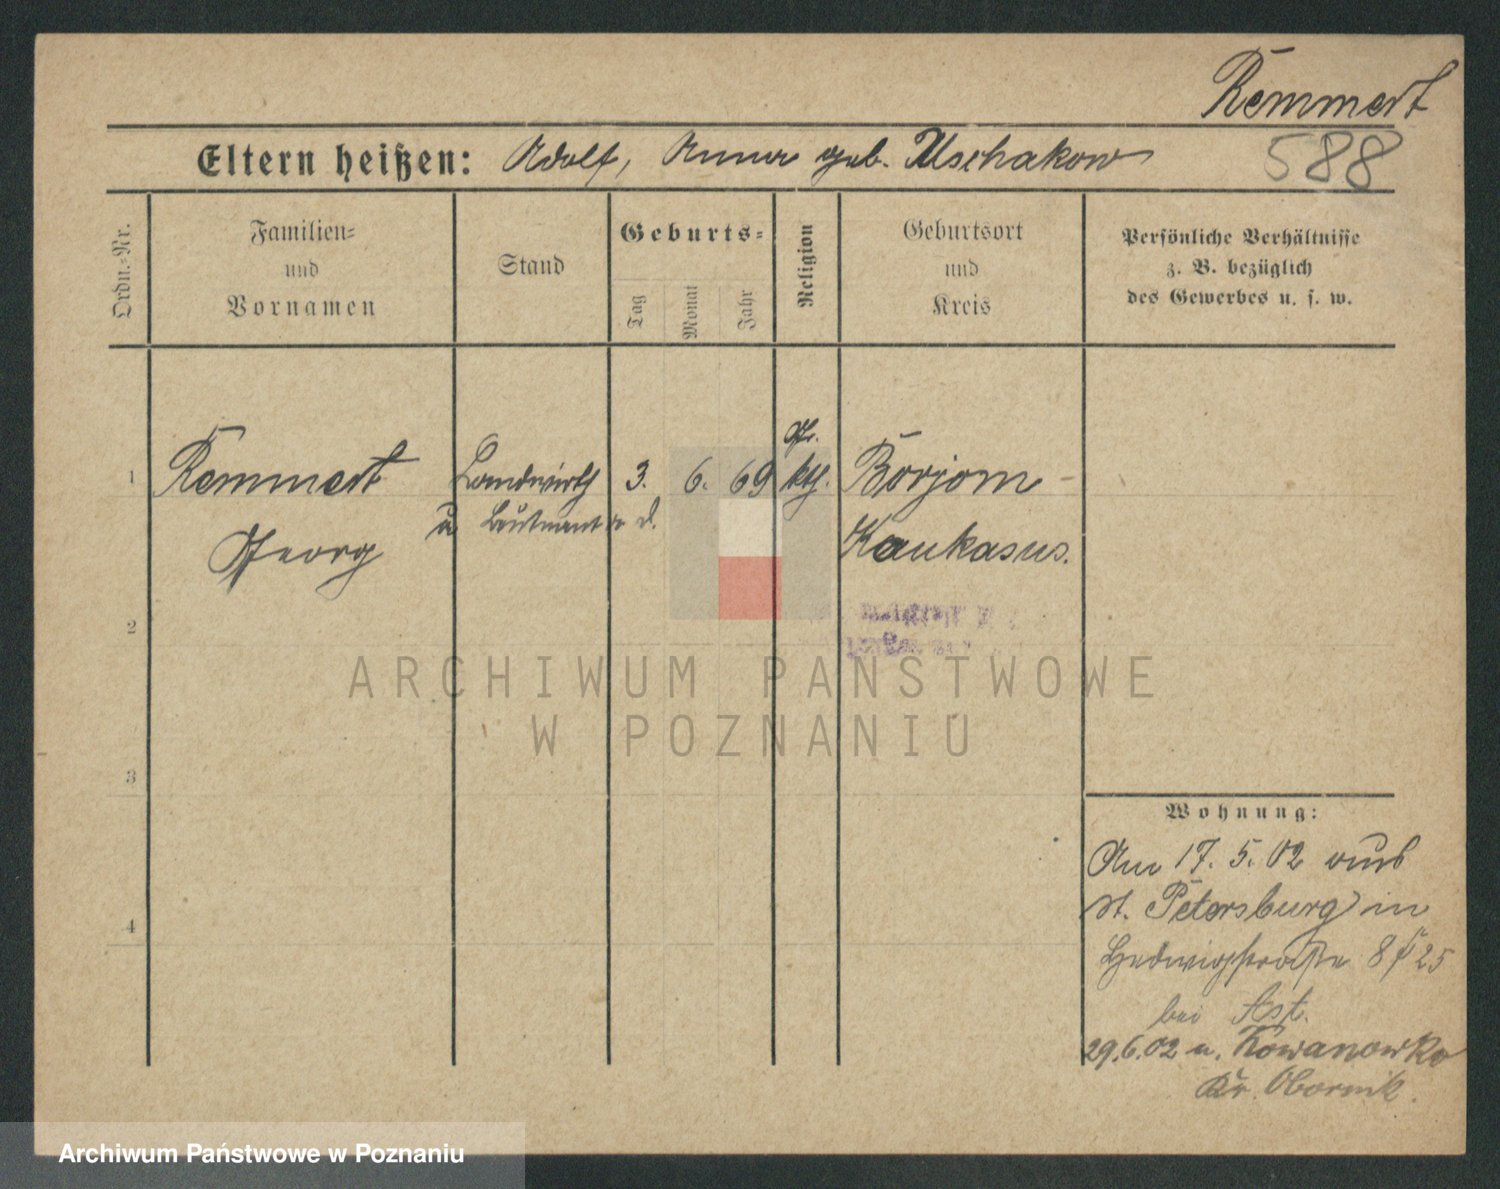 Remmert
588
Eltern heißen: Adolf, Anna geb. Uschakow
Ordn.-Nr.
Familien-
und
Vornamen
Stand
Geburts-
Tag
Monat
Jahr
Religion
Geburtsort
und
Kreis
Persönliche Verhältnisse
z. B. bezüglich
des Gewerbes u. s. w.
1
Remmert
Georg
Landwirth
u Leutnant a d.
3. 6. 69
gr.
kth.
Borjom-
Kaukasus.
2
3
4
ARCHIWUM PAŃSTWOWE
W POZNANIU
Wohnung:
Am 17. 5. 02 aus
St. Petersburg in
Hedwigstraße 8 25
bei Ast.
29.6.02 n. Kowanowko
Kr. Obornik.
Archiwum Państwowe w Poznaniu